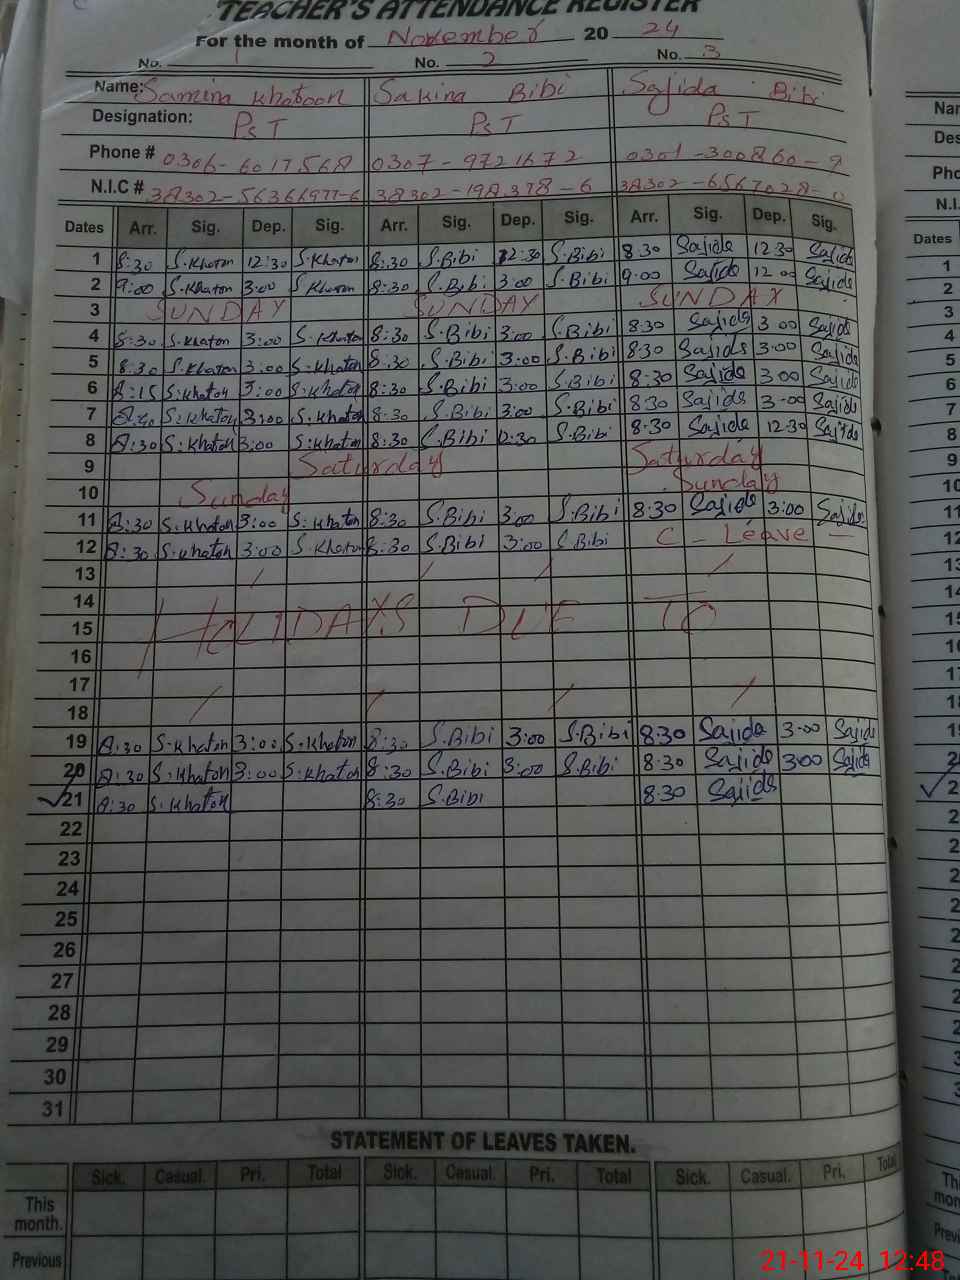 TEACHER'S ATTENDANCE REGISTER
For the month of November 20 24
No. 1 No. 2 No. 3
Name: Samina Khatoon Sakina Bibi Sajida Bibi
Designation: PST PST PST
Phone # 0306-6017568 0307-9721672 0301-300860-9
N.I.C # 38302-5636697 7-6 38302-198378-6 38302-6567028-0
Dates Arr. Sig. Dep. Sig. Arr. Sig. Dep. Sig. Arr. Sig. Dep. Sig.
1 8:30 S.Khaton 12:30 S.Khaton 8:30 S.Bibi 12:30 S.Bibi 8:30 Sajida 12:30 Sajida
2 9:00 S.Khaton 3:00 S.Khaton 8:30 S.Bibi 3:00 S.Bibi 9:00 Sajida 12 00 Sajida
3 SUNDAY SUNDAY SUNDAY
4 8:30 S.Khaton 3:00 S.Khaton 8:30 S.Bibi 3:00 S.Bibi 8:30 Sajida 3 00 Sajida
5 8:30 S.Khaton 3:00 S.Khaton 8:30 S.Bibi 3:00 S.Bibi 8:30 Sajida 3:00 Sajida
6 8:15 S.Khaton 3:00 S.Khaton 8:30 S.Bibi 3:00 S.Bibi 8:30 Sajida 3 00 Sajida
7 8:30 S.Khaton 3:00 S.Khaton 8:30 S.Bibi 3:00 S.Bibi 8:30 Sajida 3-00 Sajida
8 8:30 S.Khaton 3:00 S.Khaton 8:30 S.Bibi 12:30 S.Bibi 8:30 Sajida 12:30 Sajida
9 Saturday Saturday
10 Sunday Sunday
11 8:30 S.Khaton 3:00 S.Khaton 8:30 S.Bibi 3:00 S.Bibi 8:30 Sajida 3:00 Sajida
12 8:30 S.Khaton 3:00 S.Khaton 8:30 S.Bibi 3:00 S.Bibi C - Leave -
13
14
15 HOLIDAYS DUE TO
16
17
18
19 8:30 S.Khaton 3:00 S.Khaton 8:30 S.Bibi 3:00 S.Bibi 8:30 Sajida 3-00 Sajida
20 8:30 S.Khaton 3:00 S.Khaton 8:30 S.Bibi 3:00 S.Bibi 8:30 Sajida 3:00 Sajida
21 8:30 S.Khaton 8:30 S.Bibi 8:30 Sajida
22
23
24
25
26
27
28
29
30
31
STATEMENT OF LEAVES TAKEN.
Sick. Casual. Pri. Total Sick. Casual. Pri. Total Sick. Casual. Pri. Total
This month.
Previous
21-11-24 12:48